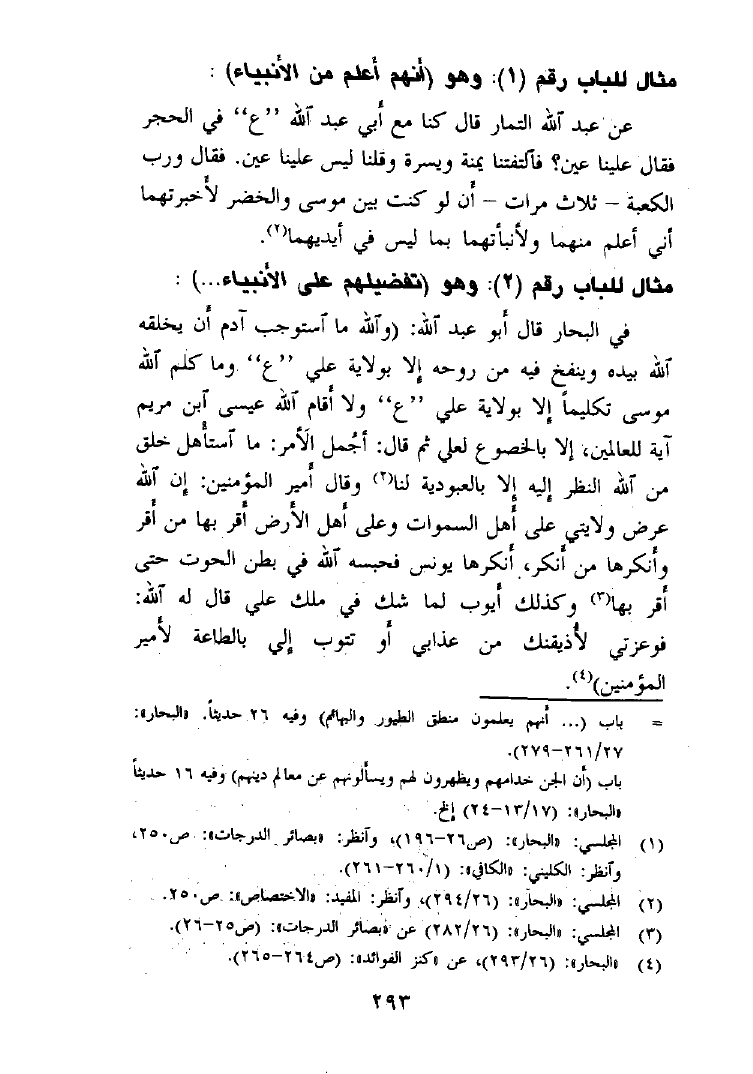 مثال للباب رقم (١): وهو (أنهم أعلم من الأنبياء) :
عن عبد ٱلله التمار قال كنا مع أبي عبد ٱلله ’’ع‘‘ في الحجر
فقال علينا عين؟ فٱلتفتنا يمنة ويسرة وقلنا ليس علينا عين. فقال ورب
الكعبة – ثلاث مرات – أن لو كنت بين موسى والخضر لأخبرتهما
أني أعلم منهما ولأنبأتهما بما ليس في أيديهما(٢).
مثال للباب رقم (٢): وهو (تفضيلهم على الأنبياء...) :
في البحار قال أبو عبد ٱلله: (وٱلله ما ٱستوجب آدم أن يخلقه
ٱلله بيده وينفخ فيه من روحه إلا بولاية علي ’’ع‘‘ وما كلم ٱلله
موسى تكليماً إلا بولاية علي ’’ع‘‘ ولا أقام ٱلله عيسى ٱبن مريم
آية للعالمين، إلا بالخضوع لعلي ثم قال: أجمل الأمر: ما ٱستأهل خلق
من ٱلله النظر إليه إلا بالعبودية لنا(٢) وقال أمير المؤمنين: إن ٱلله
عرض ولايتي على أهل السموات وعلى أهل الأرض أقر بها من أقر
وأنكرها من أنكر، أنكرها يونس فحبسه ٱلله في بطن الحوت حتى
أقر بها(٣) وكذلك أيوب لما شك في ملك علي قال له ٱلله:
فوعزتي لأذيقنك من عذابي أو تتوب إلي بالطاعة لأمير
المؤمنين)(٤).
= باب (... أنهم يعلمون منطق الطيور والبهائم) وفيه ٢٦ حديثاً. «البحار»:
٢٧/٢٦١–٢٧٩).
باب (أن الجن خدامهم ويظهرون لهم ويسألونهم عن معالم دينهم) وفيه ١٦ حديثاً
«البحار»: (١٣/١٧–٢٤) إلخ.
(١) المجلسي: «البحار»: (ص٢٦–١٩٦)، وٱنظر: «بصائر الدرجات»: ص٢٥٠،
وٱنظر: الكليني: «الكافي»: (١/٢٦٠–٢٦١).
(٢) المجلسي: «البحار»: (٢٩٤/٢٦)، وٱنظر: المفيد: «الاختصاص»: ص٢٥٠.
(٣) المجلسي: «البحار»: (٢٨٢/٢٦) عن «بصائر الدرجات»: (ص٢٥–٢٦).
(٤) «البحار»: (٢٩٣/٢٦)، عن «كنز الفوائد»: (ص٢٦٤–٢٦٥).
٢٩٣